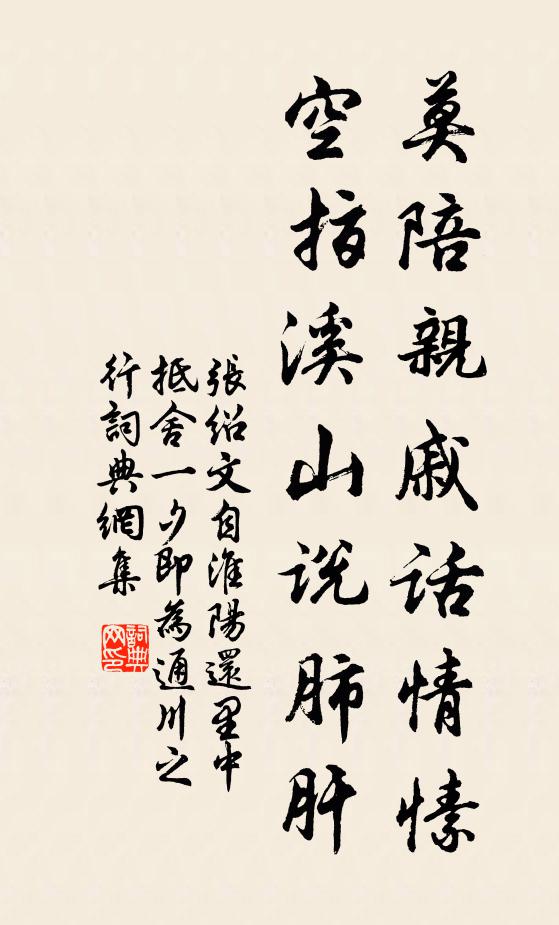 莫陪親戚話情愫
空指溪山说肺肝
張紹文自淮陽還里中
抵舍一夕即為通川之
行詞典網集
詞典
网印